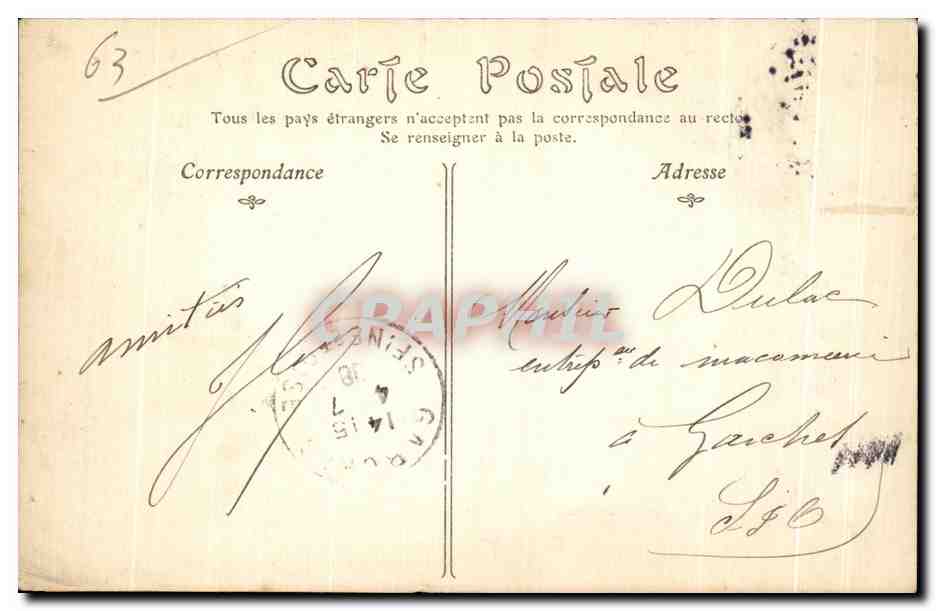 63
Carte Postale
Tous les pays étrangers n'acceptent pas la correspondance au recto
Se renseigner à la poste.
Correspondance
Adresse
amitiés
Monsieur Dulac
entrep. de macomnerie
à Garches
S & O
CPAPHIL
14 15
7
4